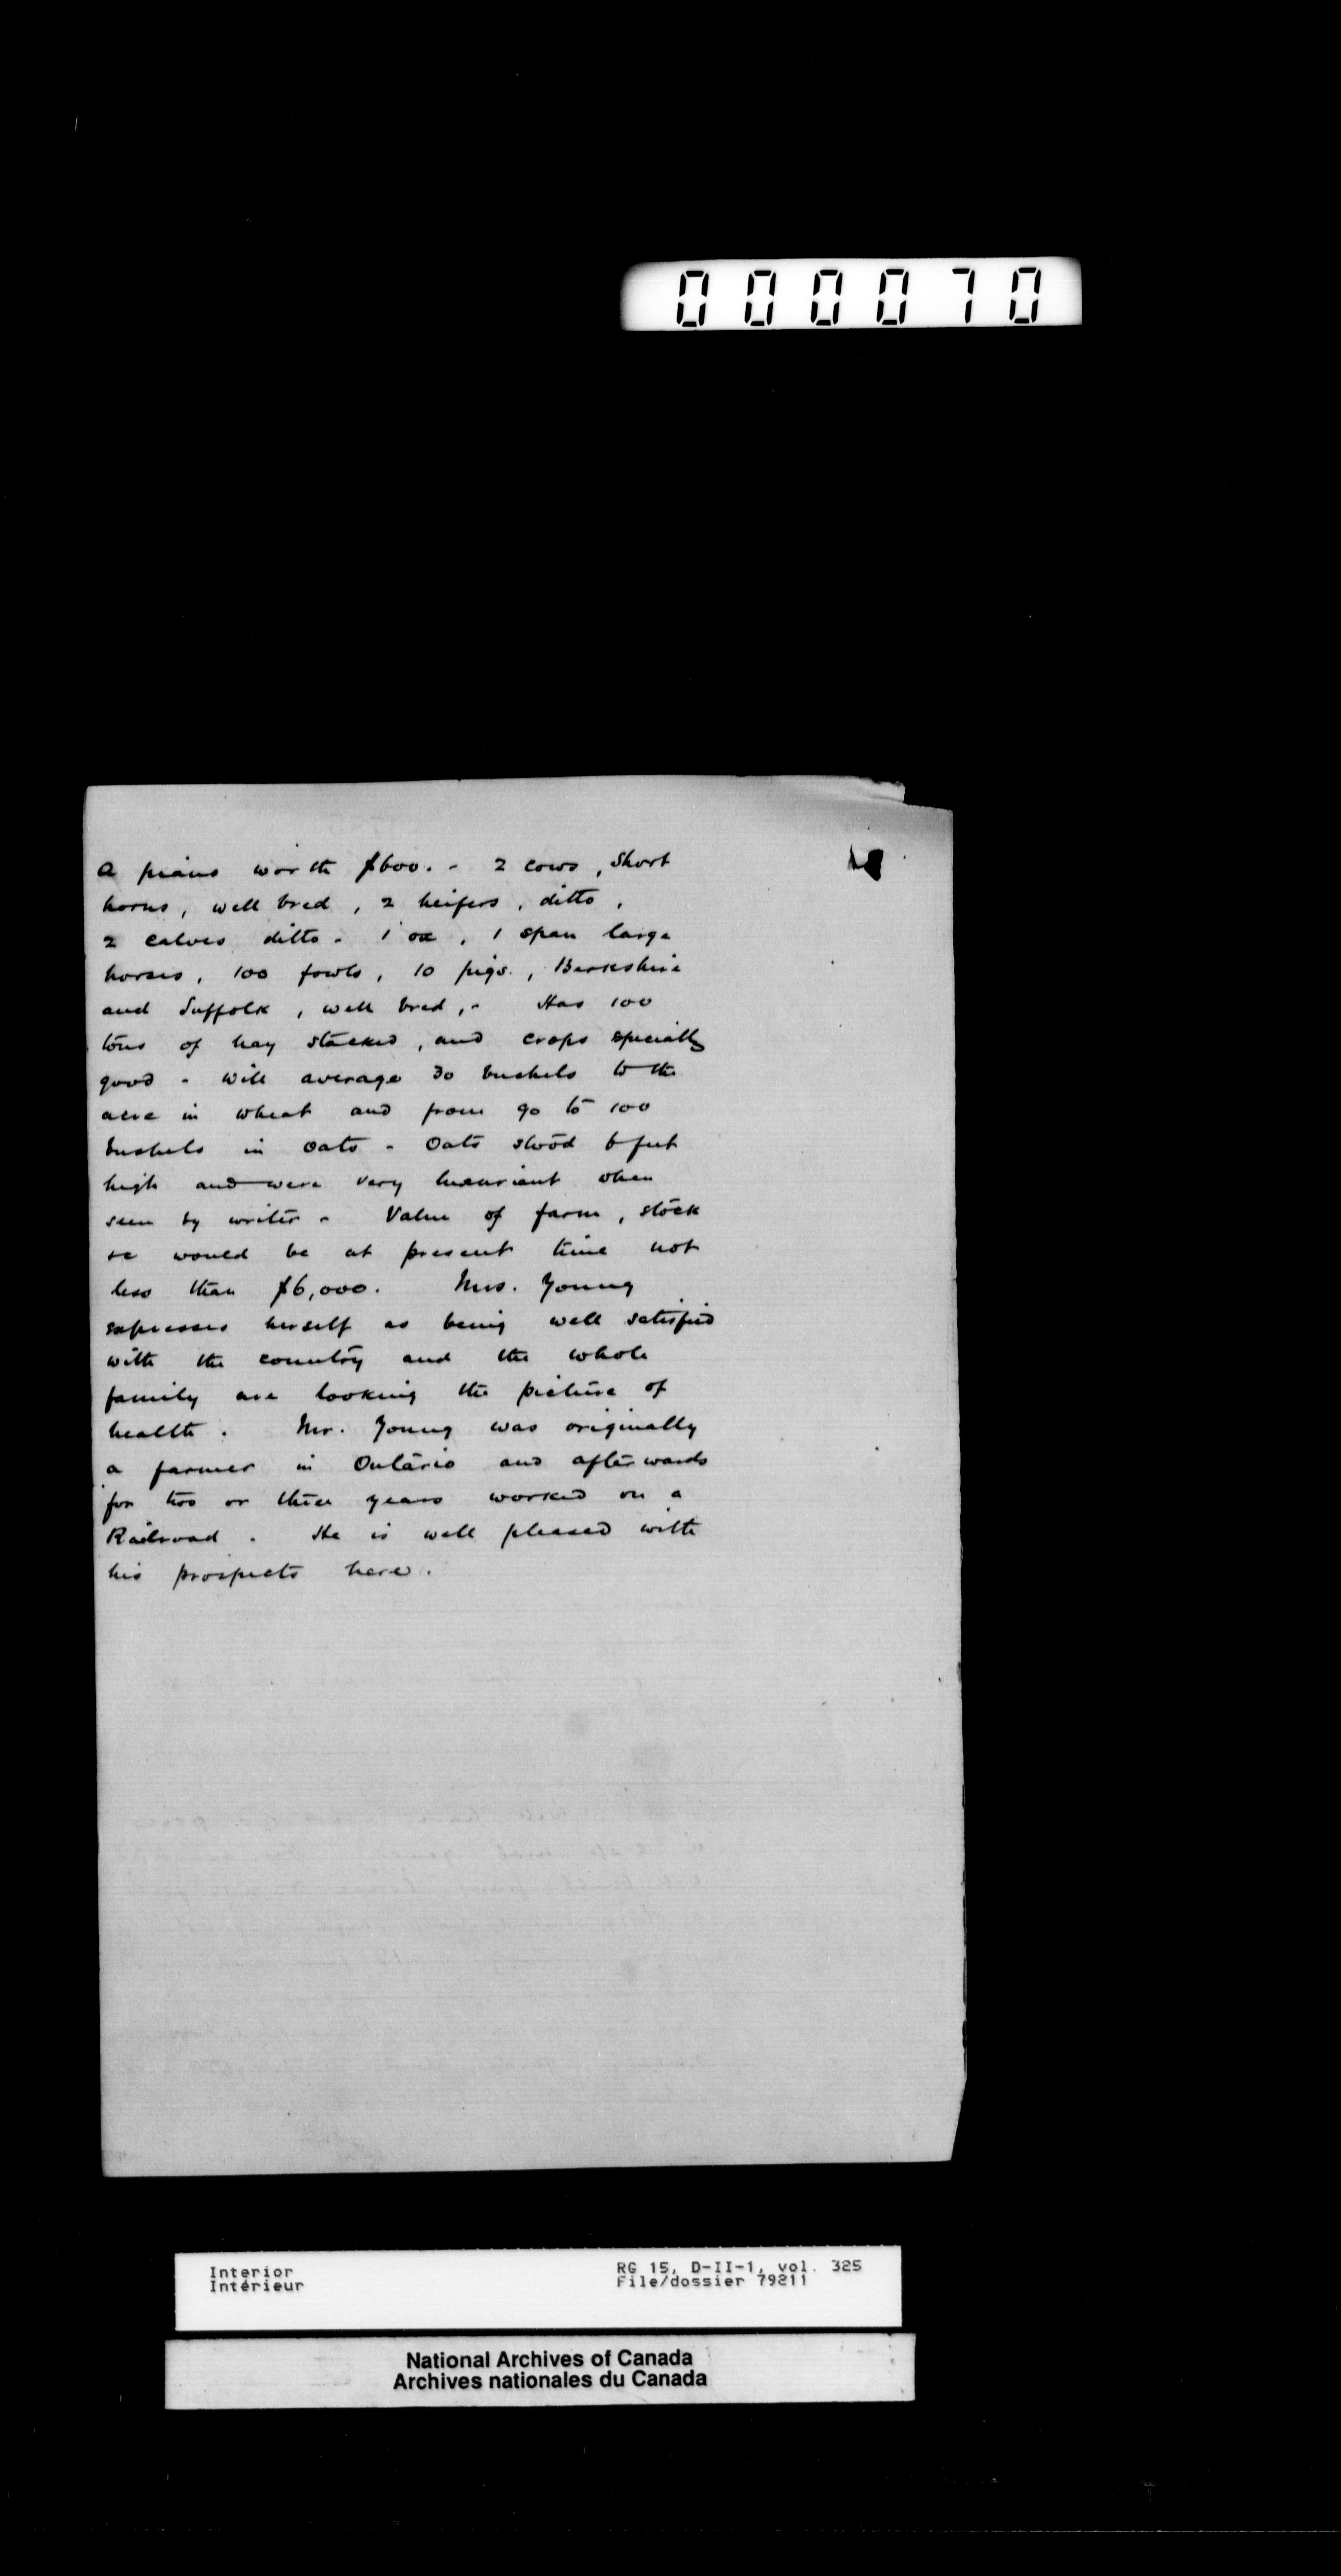 000070
a piano worth $600. - 2 cows, short
horns, well bred, 2 heifers, ditto,
2 calves ditto. 1 ox, 1 span large
horses, 100 fowls, 10 pigs., Berkshire
and Suffolk, well bred, - Has 100
tons of hay stacked, and crops specially
good - will average 30 bushels to the
acre in wheat and from 90 to 100
bushels in oats - Oats stood 6 feet
high and were very luxuriant when
seen by writer - Value of farm, stock
&c would be at present time not
less than $6,000. Mrs. Young
expresses herself as being well satisfied
with the country and the whole
family are looking the picture of
health. Mr. Young was originally
a farmer in Ontario and afterwards
for two or three years worked on a
Railroad. He is well pleased with
his prospects here.
Interior
Intérieur
RG 15, D-II-1, vol. 325
File/dossier 79211
National Archives of Canada
Archives nationales du Canada